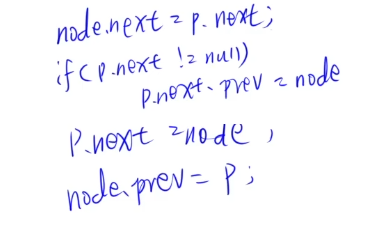 node.next = p.next;
if(p.next != null)
p.next.prev = node
p.next = node ,
node.prev = p;